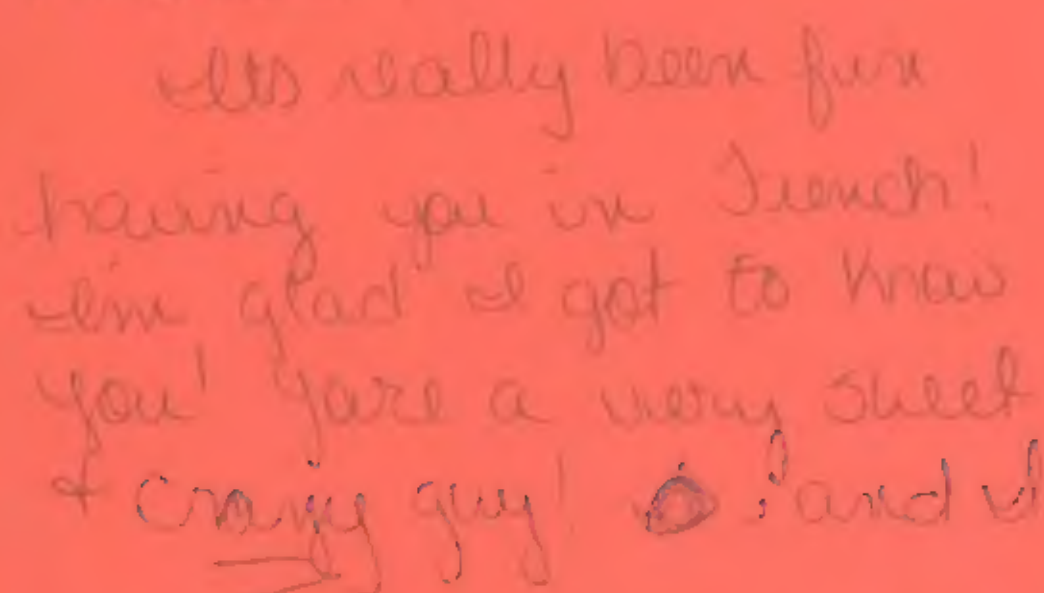 Its really been fun
having you in French!
Im glad I got to know
you! Yare a very sweet
+ crazy guy! and I